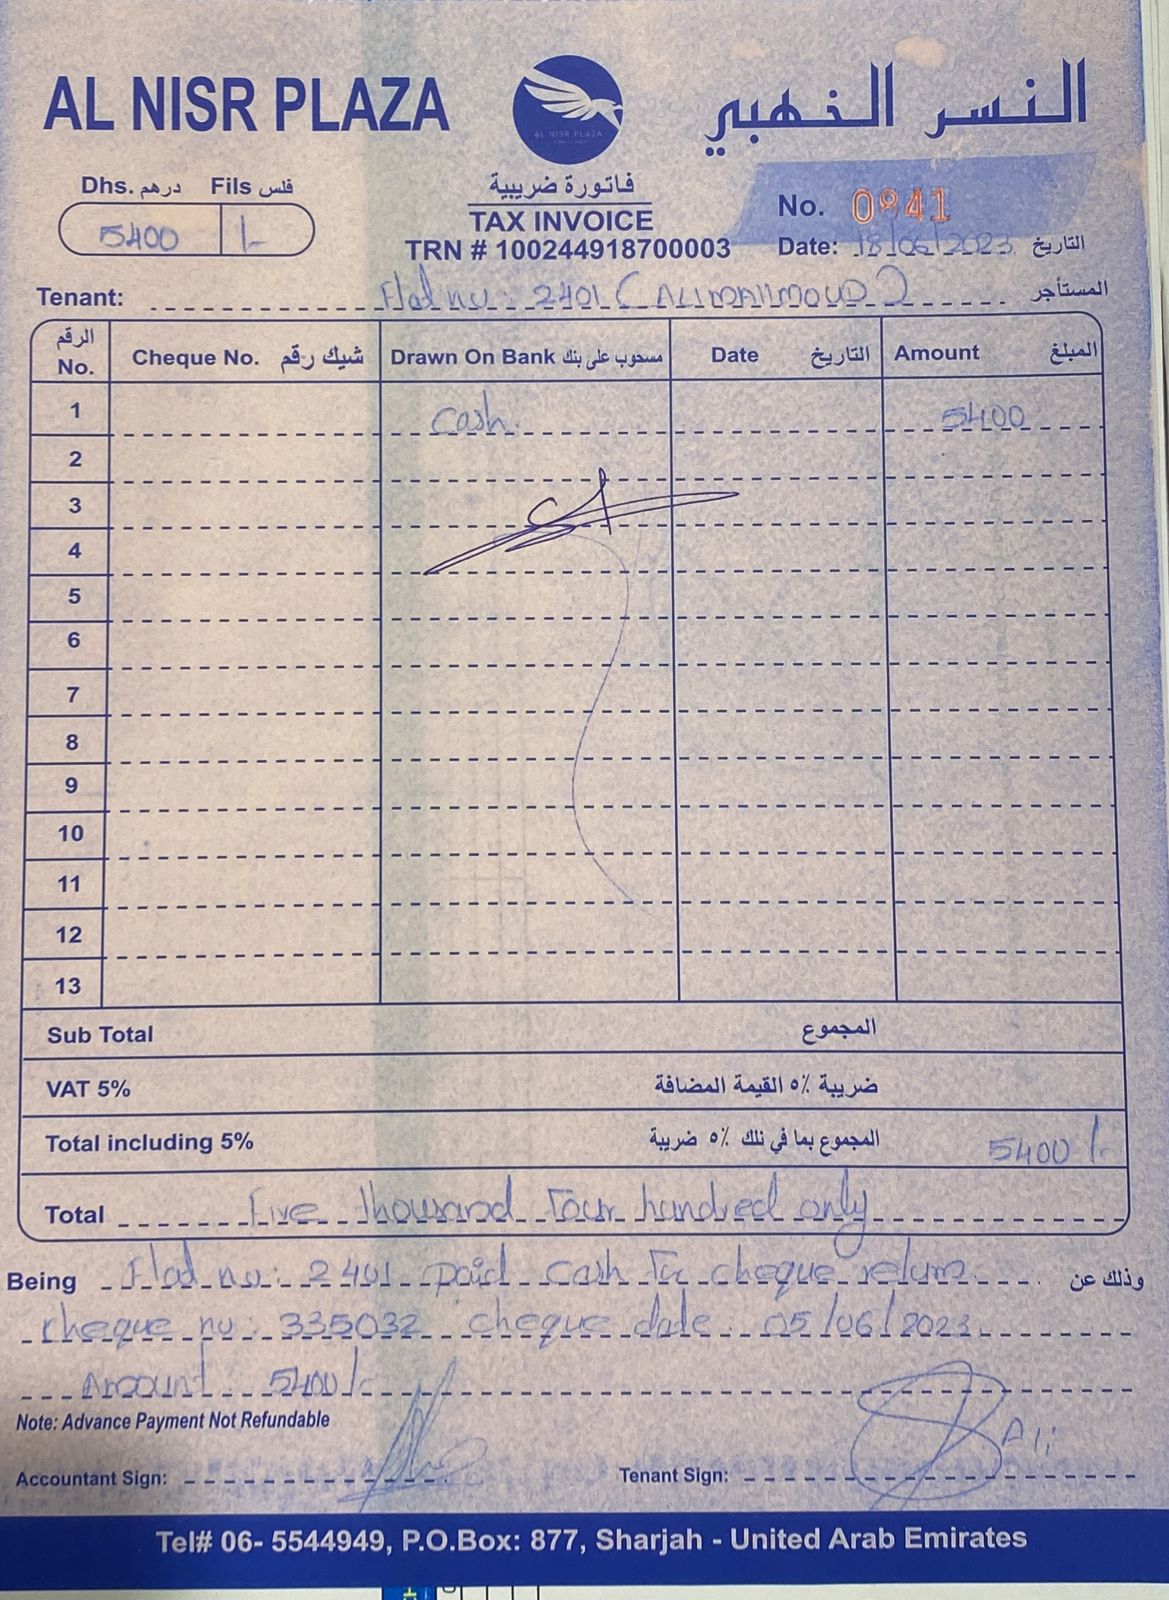 AL NISR PLAZA
AL NISR PLAZA
النسر الذهبي
Dhs. درهم Fils فلس
5400 /-
فاتورة ضريبية
TAX INVOICE
TRN # 100244918700003
No. 0841
Date: 18/06/2023 التاريخ
Tenant: Flat no: 2401 (ALI MAHMOUD) المستأجر
الرقم No. Cheque No. شيك رقم Drawn On Bank مسحوب على بنك Date التاريخ Amount المبلغ
1 Cash 5400
2
3
4
5
6
7
8
9
10
11
12
13
Sub Total المجموع
VAT 5% ضريبة ٥٪ القيمة المضافة
Total including 5% المجموع بما في ذلك ٥٪ ضريبة 5400/-
Total Five thousand Four hundred only
Being Flat no: 2401 paid cash For cheque return وذلك عن
cheque no: 335032 cheque date: 05/06/2023
Amount 5400/-
Note: Advance Payment Not Refundable
Accountant Sign: Tenant Sign: Ali
Tel# 06- 5544949, P.O.Box: 877, Sharjah - United Arab Emirates